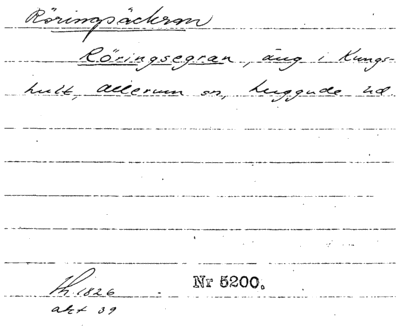 Röringsäckran
Röringsegran, äng i Kungs-
hult, Allerum sn, Luggude hd.
Nr 5200.
Lh 1826
akt 39